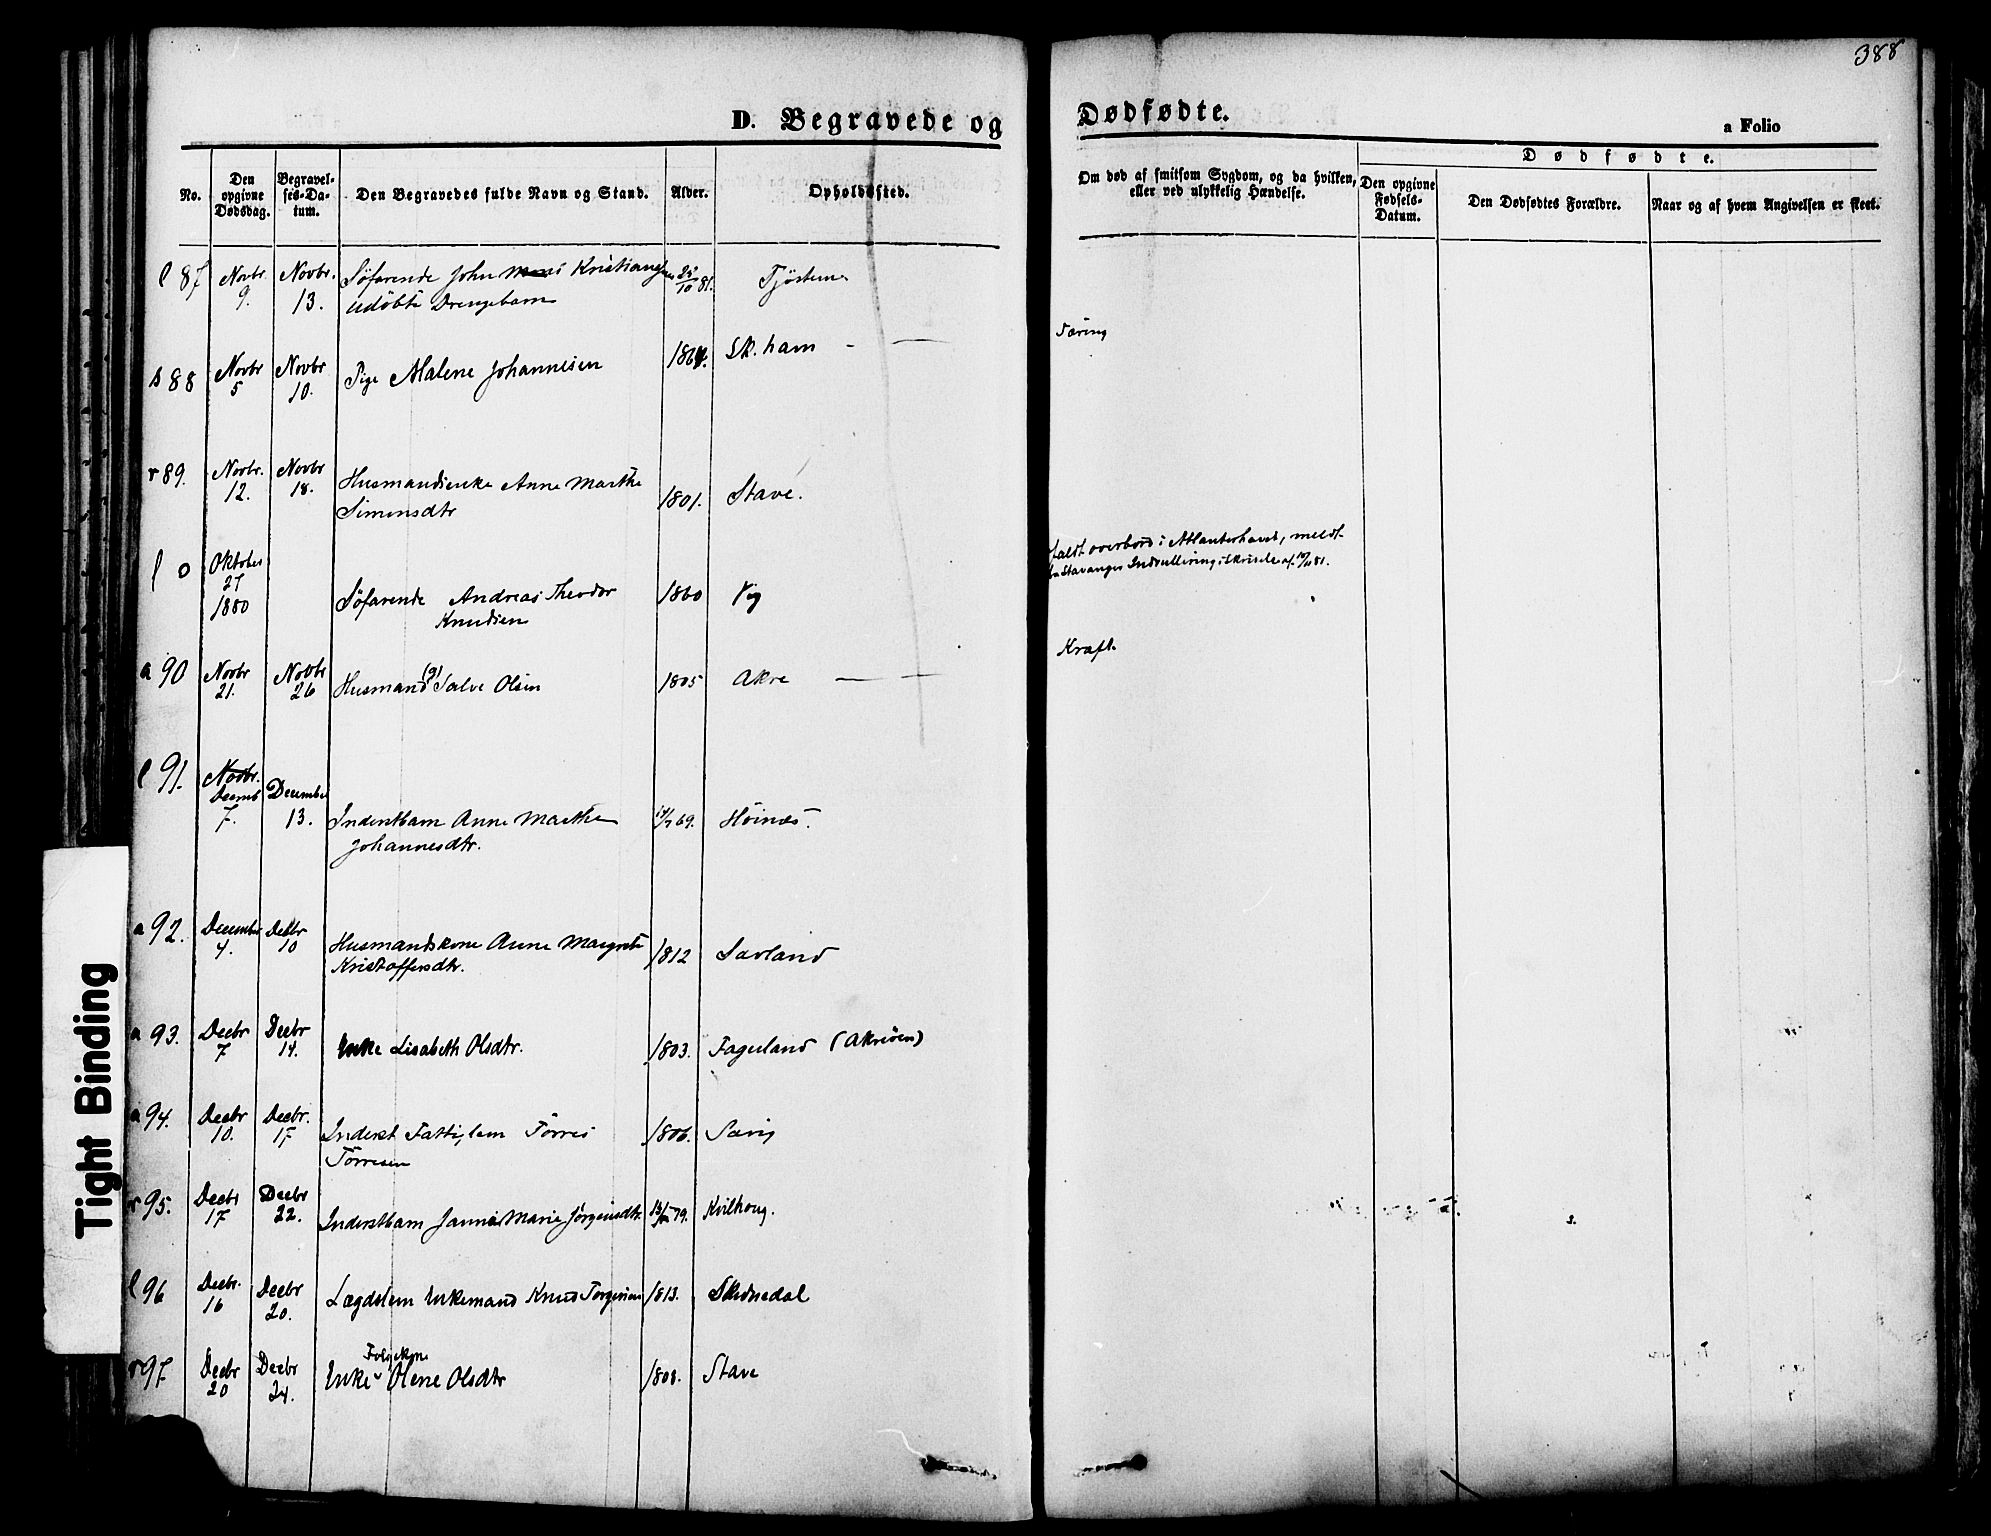 388
D. Begravede og Dødfødte.
a Folio
No.
Den opgivne Dødsdag.
Begravel-ses-Da-tum.
Den Begravedes fulde Navn og Stand.
Alder.
Opholdssted.
Om død af smitsom Sygdom, og da hvilken, eller ved ulykkelig Hændelse.
Dødfødte.
Den opgivne Fødsels-Datum.
Den Dødfødtes Forældre.
Naar og af hvem Angivelsen er skeet.
l 87 Novbr. 9. Novbr. 13. Søfarende John Kristiansens 25/10 81. Tjøstem
udøbte Drengebarn
s 88 Novbr 5 Novbr 10. Pige Malene Johannesen 1864. Sk.havn — — Tæring
r 89. Novbr. 12. Novbr 18. Husmandsenke Anne Marthe 1801. Stave.
Simonsdtr
l 0 Oktober 27 1880 Søfarende Andreas Theodor 1860 Vig faldt overbord i Atlanterhavet, meldt
Knudsen Stavanger Indrullering i Skrivelse af
a 90 Novbr 21. Novbr 26 Husmand (g) Salve Olsen 1805 Akre — — Kræft
l 91. Novbr. Decmb 7. December 13. Inderstbarn Anne Marthe 69. Høinæs.
Johannesdtr.
a 92. December 4. Decbr 10 Husmandskone Anne Margrete 1812 Savland
Kristoffersdtr.
a 93. Decbr 7 Decbr 14. Enke Lisabeth Olsdtr. 1803. Fagerland (Akreøen)
a 94. Decbr 10. Decbr. 17 Inderst Fattiglem Tørres 1806. Sævig
Tørresen
r 95. Decbr 17 Decbr 22. Inderstbarn Janna Marie Jørgensdtr. 79. Kvilhoug.
l 96 Decbr. 16 Decbr 20. Lægdslem Enkemand Knud Torgersen 1813. Skednedal
r 97 Decbr 20 Decbr 24. Enke Føigekone Olene Olsdtr 1808. Stave
Tight Binding